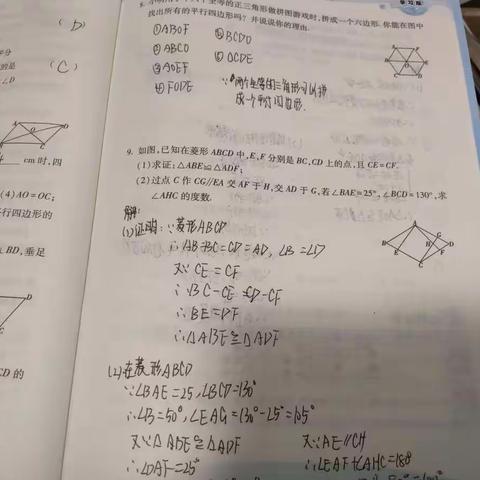 学习报
8. 小明用
个全等的正三角形做拼图游戏时,拼成一个六边形.你能在图中
找出所有的平行四边形吗?并说说你的理由.
①ABOF ⑤BCDO
②ABCO ⑥OCDE
③AOEF
④FODE
∵两个全等的三角形可以拼
成一个平行四边形.
9. 如图,已知在菱形 ABCD 中,E,F 分别是 BC,CD 上的点,且 CE=CF.
(1)求证:△ABE≌△ADF;
(2)过点 C 作 CG//EA 交 AF 于 H,交 AD 于 G,若∠BAE=25°,∠BCD=130°,求
∠AHC 的度数.
解:
(1)证明:∵菱形ABCD
∴AB=BC=CD=AD, ∠B=∠D
又∵CE=CF
∴BC-CE=CD-CF
∴BE=DF
∴△ABE≌△ADF
(2)在菱形ABCD
∵∠BAE=25,∠BCD=130°
∴∠B=50°,∠EAG=130°-25°=105°
又∵△ABE≌△ADF
∴∠DAF=25°
又∵AE//CH
∴∠EAF+∠AHC=180°
(D)
(C)
∠D
cm 时,四
(4)AO=OC;
平行四边形的
BD,垂足
CD 的